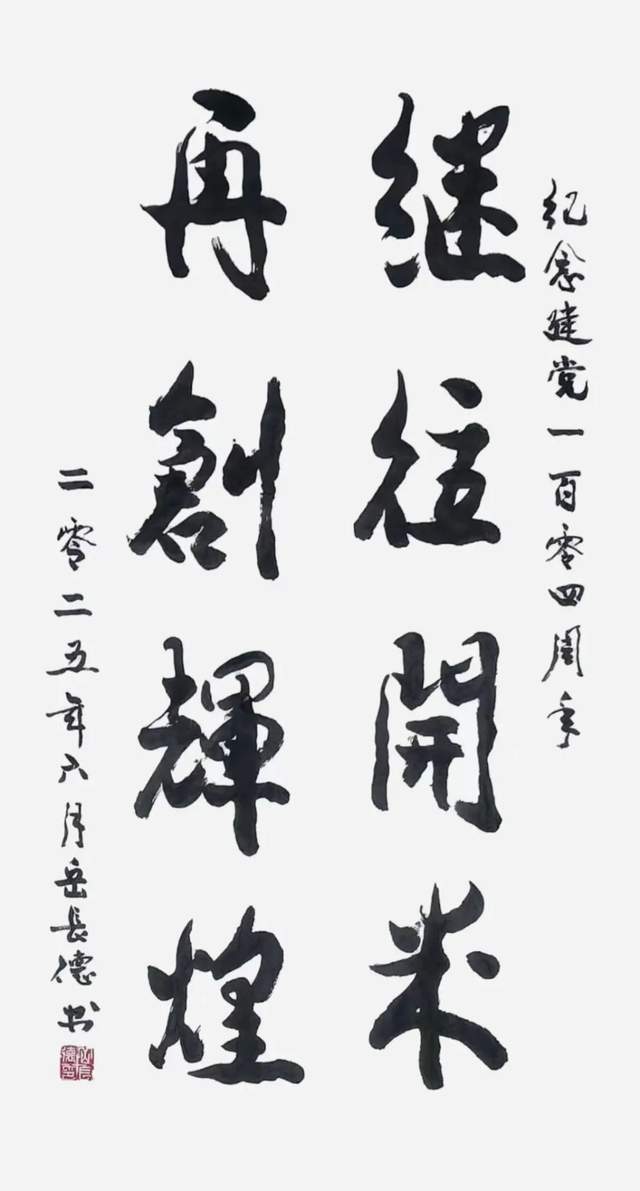 纪念建党一百零四周年
继往開来
再創輝煌
二零二五年六月岳長德书